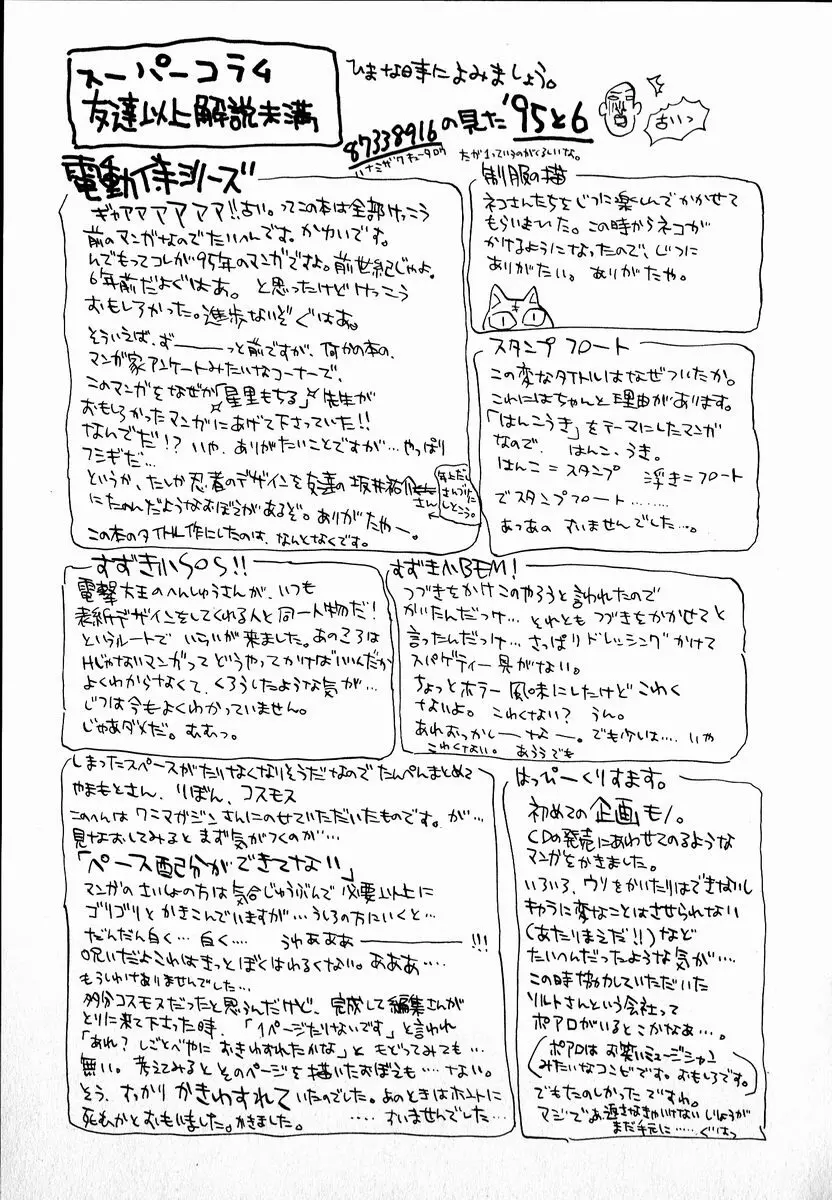 スーパーコラム
友達以上解説未満
ひまな時によみましょう。
87338916の見た'95と6
ハナミザワキュータロウ
古いっ
電動侍シリーズ
ギャアアアアアア!!古い。ってこの本は全部けっこう
前のマンガなのでたいへんです。かわいです。
んでもってコレが95年のマンガですよ。前世紀じゃよ。
6年前だよぐはあ。と思ったけどけっこう
おもしろかった。進歩ないぞぐはあ。
そういえば、ず――――っと前ですが、何かの本の、
マンガ家アンケートみたいなコーナーで、
このマンガをなぜか「星里もちる」先生が
おもしろかったマンガにあげて下さっていた!!
なんでだ!?いや、ありがたいことですが…やっぱり
フシギだ…
というか、たしか忍者のデザインを友達の坂井祐介さん
年上だしさんづけにしとこう。
にたのんだようなおぼえがあるぞ。ありがたやー。
この本のタイトル作にしたのは、なんとなくです。
制服の猫
ネコさんたちをじつに楽しんでかかせて
もらいました。この時からネコが
かけるようになったので、じつに
ありがたい。ありがたや。
スタンプフロート
この変なタイトルはなぜついたか。
これにはちゃんと理由があります。
「はんこうき」をテーマにしたマンガ
なので、はんこ、うき。
はんこ=スタンプ 浮き=フロート
でスタンプフロート………
あっあの すいませんでした…。
すずき小SOS!!
電撃大王のへんしゅうさんが、いつも
表紙デザインをしてくれる人と同一人物だ!
というルートで いらいが来ました。あのころは
Hじゃないマンガって どうやってかけばいいんだか
よくわからなくて、くろうしたような気が…
じつは今もよくわかっていません。
じゃあダメだ。むむっ。
すずき小BEM!
つづきをかけこのやろうと言われたので
かいたんだっけ… それともつづきをかかせてと
言ったんだっけ… さっぱりドレッシングかけて
スパゲティー具がない。
ちょっとホラー風味にしたけどこわく
ないよ。こわくない? うん。
あれおっかしーなー。でも少しは… いや
こわくない。あろうでも
しまったスペースがたりなくなりそうだなのでたんぺんまとめて
やまもとさん、りぼん、コスモス
このへんはワニマガジンさんにのせていただいたものです。が…
見なおしてみるとまず気がつくのが…
「ペース配分ができてない」
マンガのさいしょの方は気合じゅうぶんで必要以上に
ゴリゴリとかきこんでいますが…うしろの方にいくと…
だんだん白く…白く… うわあああ――――!!!
呪いだよこれはきっとぼくはわるくない。あああ….
もうしわけありませんでした…
多分コスモスだったと思うんだけど、完成して編集さんが
とりに来て下さった時、「1ページたりないです」と言われ
「あれ?しごとべやにおきわすれたかな」ともどってみても…
無い。考えてみるとそのページを描いたおぼえも…ない。
そう、すっかりかきわすれていたのでした。あのときはホントに
死ぬかとおもいました。かきました。 ….すいませんでした…
はっぴーくりすます。
初めての企画モノ。
CDの発売にあわせてのるような
マンガをかきました。
いろいろ、ウリをかいたりはできないし
キャラに変なことはさせられない
(あたりまえだ!!)など
たいへんだったような気が…
この時協力していただいた
ソルトさんという会社って
ポアロがいるとこかなあ…。
(ポアロはお笑いミュージシャン
みたいなコンビです。おもしろです。)
でもたのしかったですね。
マジであ返さなきゃいけないしりょうが
まだ手元に……ぐはっ